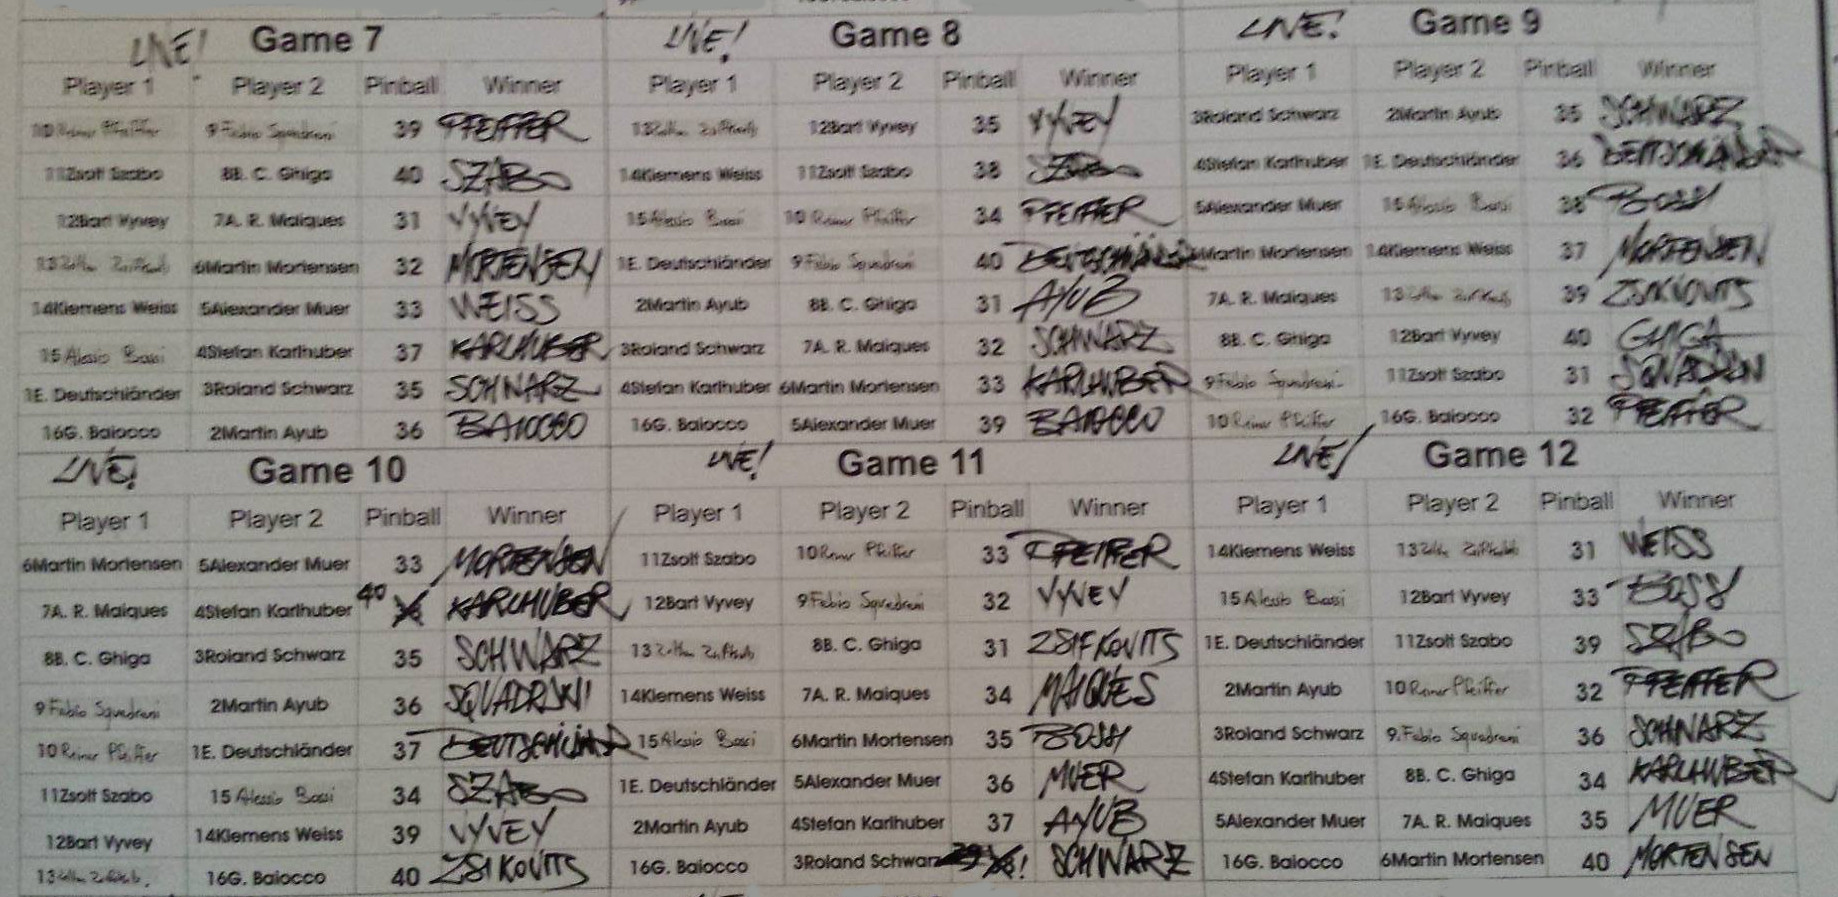 LIVE! Game 7
Player 1 Player 2 Pinball Winner
10 Reiner Pfeiffer 9 Fabio Squadrani 39 PFEIFFER
11Zsolt Szabo 8B. C. Ghiga 40 SZABO
12Bart Vyvey 7A. R. Maiques 31 VYVEY
13 6Martin Mortensen 32 MORTENSEN
14Klemens Weiss 5Alexander Muer 33 WEISS
15 Alessio Bassi 4Stefan Karlhuber 37 KARLHUBER
1E. Deutschländer 3Roland Schwarz 35 SCHWARZ
16G. Baiocco 2Martin Ayub 36 BAIOCCO
LIVE! Game 8
Player 1 Player 2 Pinball Winner
13 12Bart Vyvey 35 VYVEY
14Klemens Weiss 11Zsolt Szabo 38 SZABO
15 Alessio Bassi 10 Reiner Pfeiffer 34 PFEIFFER
1E. Deutschländer 9 Fabio Squadrani 40 DEUTSCHLÄNDER
2Martin Ayub 8B. C. Ghiga 31 AYUB
3Roland Schwarz 7A. R. Maiques 32 SCHWARZ
4Stefan Karlhuber 6Martin Mortensen 33 KARLHUBER
16G. Baiocco 5Alexander Muer 39 BAIOCCO
LIVE! Game 9
Player 1 Player 2 Pinball Winner
3Roland Schwarz 2Martin Ayub 35 SCHWARZ
4Stefan Karlhuber 1E. Deutschländer 36 DEUTSCHLÄNDER
5Alexander Muer 15 Alessio Bassi 38 BOSSI
6Martin Mortensen 14Klemens Weiss 37 MORTENSEN
7A. R. Maiques 13 39 ZSIKOVITS
8B. C. Ghiga 12Bart Vyvey 40 GHIGA
9 Fabio Squadrani 11Zsolt Szabo 31 SQUADRANI
10 Reiner Pfeiffer 16G. Baiocco 32 PFEIFFER
LIVE! Game 10
Player 1 Player 2 Pinball Winner
6Martin Mortensen 5Alexander Muer 33 MORTENSEN
7A. R. Maiques 4Stefan Karlhuber 40 KARLHUBER
8B. C. Ghiga 3Roland Schwarz 35 SCHWARZ
9 Fabio Squadrani 2Martin Ayub 36 SQUADRANI
10 Reiner Pfeiffer 1E. Deutschländer 37 DEUTSCHLÄNDER
11Zsolt Szabo 15 Alessio Bassi 34 SZABO
12Bart Vyvey 14Klemens Weiss 39 VYVEY
13 16G. Baiocco 40 ZSIKOVITS
LIVE! Game 11
Player 1 Player 2 Pinball Winner
11Zsolt Szabo 10 Reiner Pfeiffer 33 PFEIFFER
12Bart Vyvey 9 Fabio Squadrani 32 VYVEY
13 8B. C. Ghiga 31 ZSIFKOVITS
14Klemens Weiss 7A. R. Maiques 34 MAIQUES
15 Alessio Bassi 6Martin Mortensen 35 BOSSI
1E. Deutschländer 5Alexander Muer 36 MUER
2Martin Ayub 4Stefan Karlhuber 37 AYUB
16G. Baiocco 3Roland Schwarz 39 ! SCHWARZ
LIVE! Game 12
Player 1 Player 2 Pinball Winner
14Klemens Weiss 13 31 WEISS
15 Alessio Bassi 12Bart Vyvey 33 BOSSI
1E. Deutschländer 11Zsolt Szabo 39 SZABO
2Martin Ayub 10 Reiner Pfeiffer 32 PFEIFFER
3Roland Schwarz 9. Fabio Squadrani 36 SCHWARZ
4Stefan Karlhuber 8B. C. Ghiga 34 KARLHUBER
5Alexander Muer 7A. R. Maiques 35 MUER
16G. Baiocco 6Martin Mortensen 40 MORTENSEN